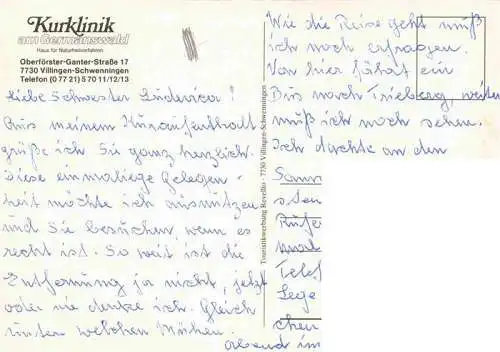 Kurklinik
am Germanswald
Haus für Naturheilverfahren
Oberförster-Ganter-Straße 17
7730 Villingen-Schwenningen
Telefon (0 77 21) 5 70 11/12/13
Liebe Schwester Ludovica!
Aus meinem Kuraufenthalt
grüße ich Sie ganz herzlich.
Diese einmalige Gelegen-
heit möchte ich ausnützen
und Sie besuchen, wenn es
recht ist. So weit ist die
Entfernung ja nicht, jetzt
oder nie denke ich. Gleich
unter welchen Mühen.
Touristikwerbung Revellio · 7730 Villingen-Schwenningen
Wie die Reise geht muß
ich noch erfragen.
Von hier fährt ein
Bus nach Triberg, weiter
muß ich noch sehen.
Ich dachte an den
Sams
s. den
Rufe
mal
Telef
Lege
chen
abend im